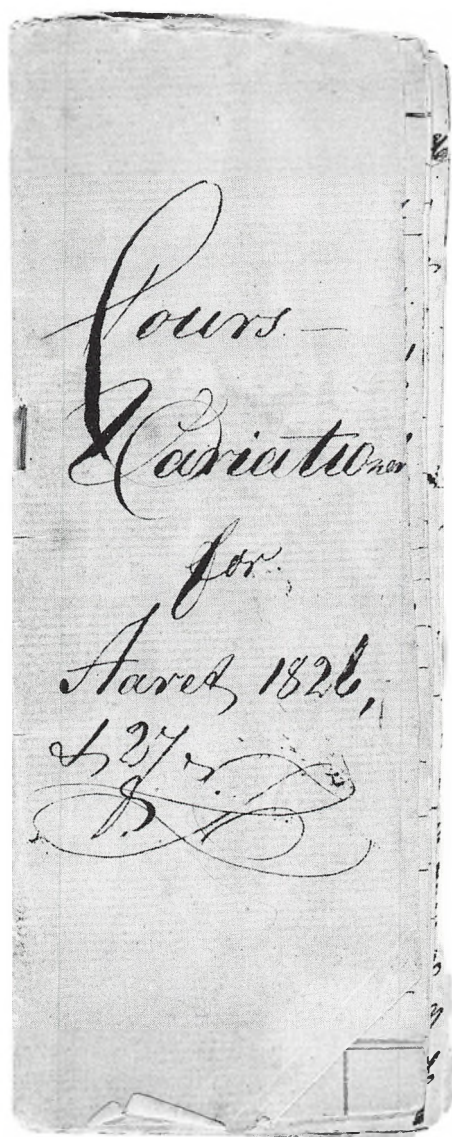 Cours-
Variationer
for
Aaret 1826,
& 27